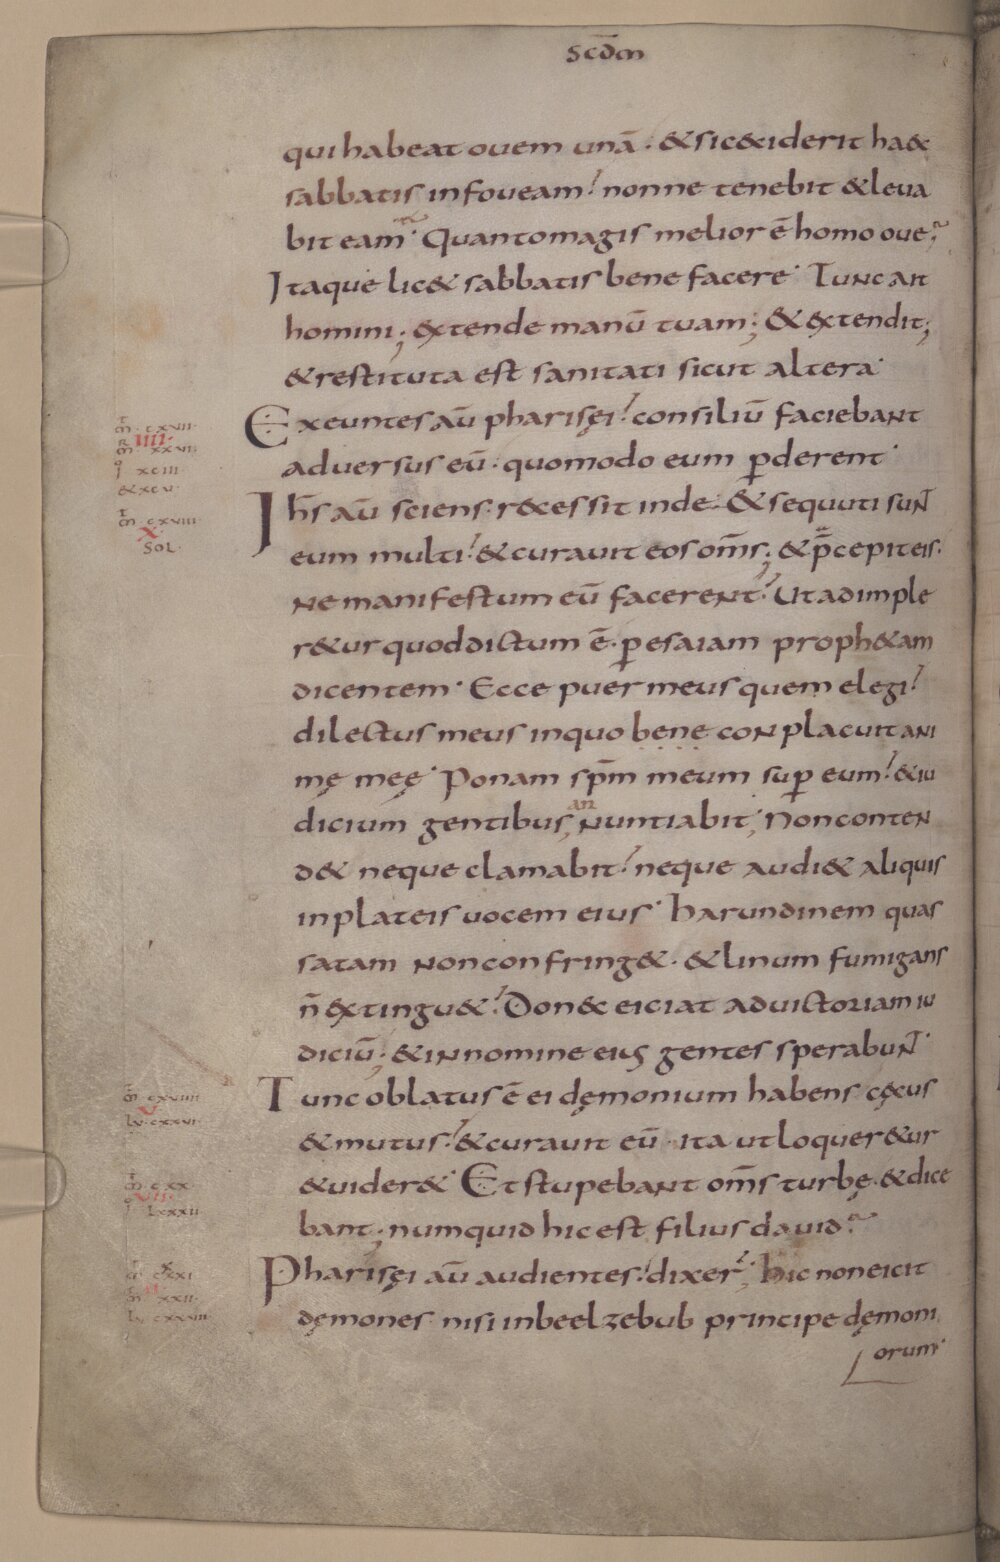 scd̄m
qui habeat ouem unā · & si c&iderit haec
sabbatis in foueam nonne tenebit & leua
bit eam · Quanto magis melior ē homo oue
Itaque lic& sabbatis bene facere · Tunc ait
homini ; extende manū tuam ; & extendit ;
& restituta est sanitati sicut altera ·
Exeuntes aū pharisęi consiliū faciebant
aduersus eū · quomodo eum ꝑderent ·
Ih̄s aū sciens · r&cessit inde · & sequuti sunt
eum multi & curauit eos om̄s ; & p̄cepit eis ·
ne manifestum eū facerent Ut adimple
r&ur quod dictum ē · ꝑ esaiam proph&am
dicentem · Ecce puer meus quem elegi
dilectus meus in quo bene conplacuit ani
mę meę · Ponam sp̄m meum suꝑ eum & iu
dicium gentibus an nuntiabit ; Non conten
d& neque clamabit neque audi& aliquis
in plateis uocem eius · harundinem quas
satam non confring& · & linum fumigans
n̄ extingu& Donec eiciat ad uictoriam iu
diciū ; & in nomine eius gentes sperabunt ·
Tunc oblatus ē ei dęmonium habens cęcus
& mutus & curauit eū · ita ut loquer&ur
& uider& · Et stupebant om̄s turbę · & dice
bant ; numquid hic est filius dauid
Pharisęi aū audientes dixer hic non eicit
dęmones nisi in beelzebub principe dęmoni
orum ·
m̄ · cxvii ·
R IIII ·
m̄ xxvii
xciii
& xcv ·
m̄ · cxviii ·
X ·
SOL ·
m̄ cxviiii
V
Lu · cxxvi ·
m̄ · cxx ·
VII ·
Lxxxii
m̄ cxxi
m̄ xxii ·
Lu cxxviii